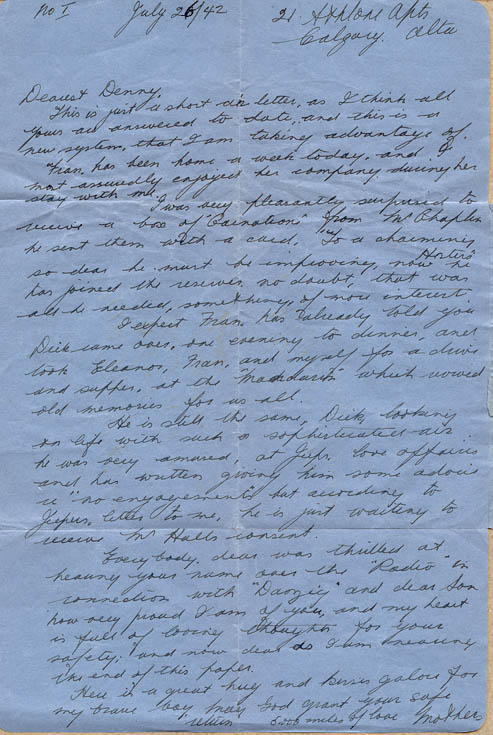 No I July 26/42 21 Axtone Apts
Calgary. Alta
Dearest Denny,
This is just a short air letter, as I think all
yours are answered to date, and this is a
new system, that I am taking advantage of.
Fran, has been home a week today, and I
most assuredly enjoyed her company during her
stay with me.
I was very pleasantly surprised to
receive a box of "Carnations" from Mr Chaplin
he sent them with a card, "To a charming
Hostess"
so dear he must be improving, now he
has joined the reserves no doubt, that was
all he needed, something, of more interest.
I expect Fran, has already told you
Dick came over, one evening to dinner, and
took Eleanor, Fran, and myself for a drive
and supper, at the "Mandarin" which revived
old memories for us all.
He is still the same, Dick, looking
on life with such a sophisticated air
he was very amused, at Jeps. love affairs
and has written giving him some advice
"no engagements" but according to
letter to me, he is just waiting to
receive Mr Halls consent.
Everybody, dear was thrilled at
hearing your name over the "Radio" in
connection with "Danzig" and dear Son
how very proud I am of you, and my heart
is full of loving thoughts for your
safety, and now dear as I am nearing
the end of this paper.
Here is a great hug and kisses galore for
my brave boy May God grant your safe
return 5,000 miles of love Mother